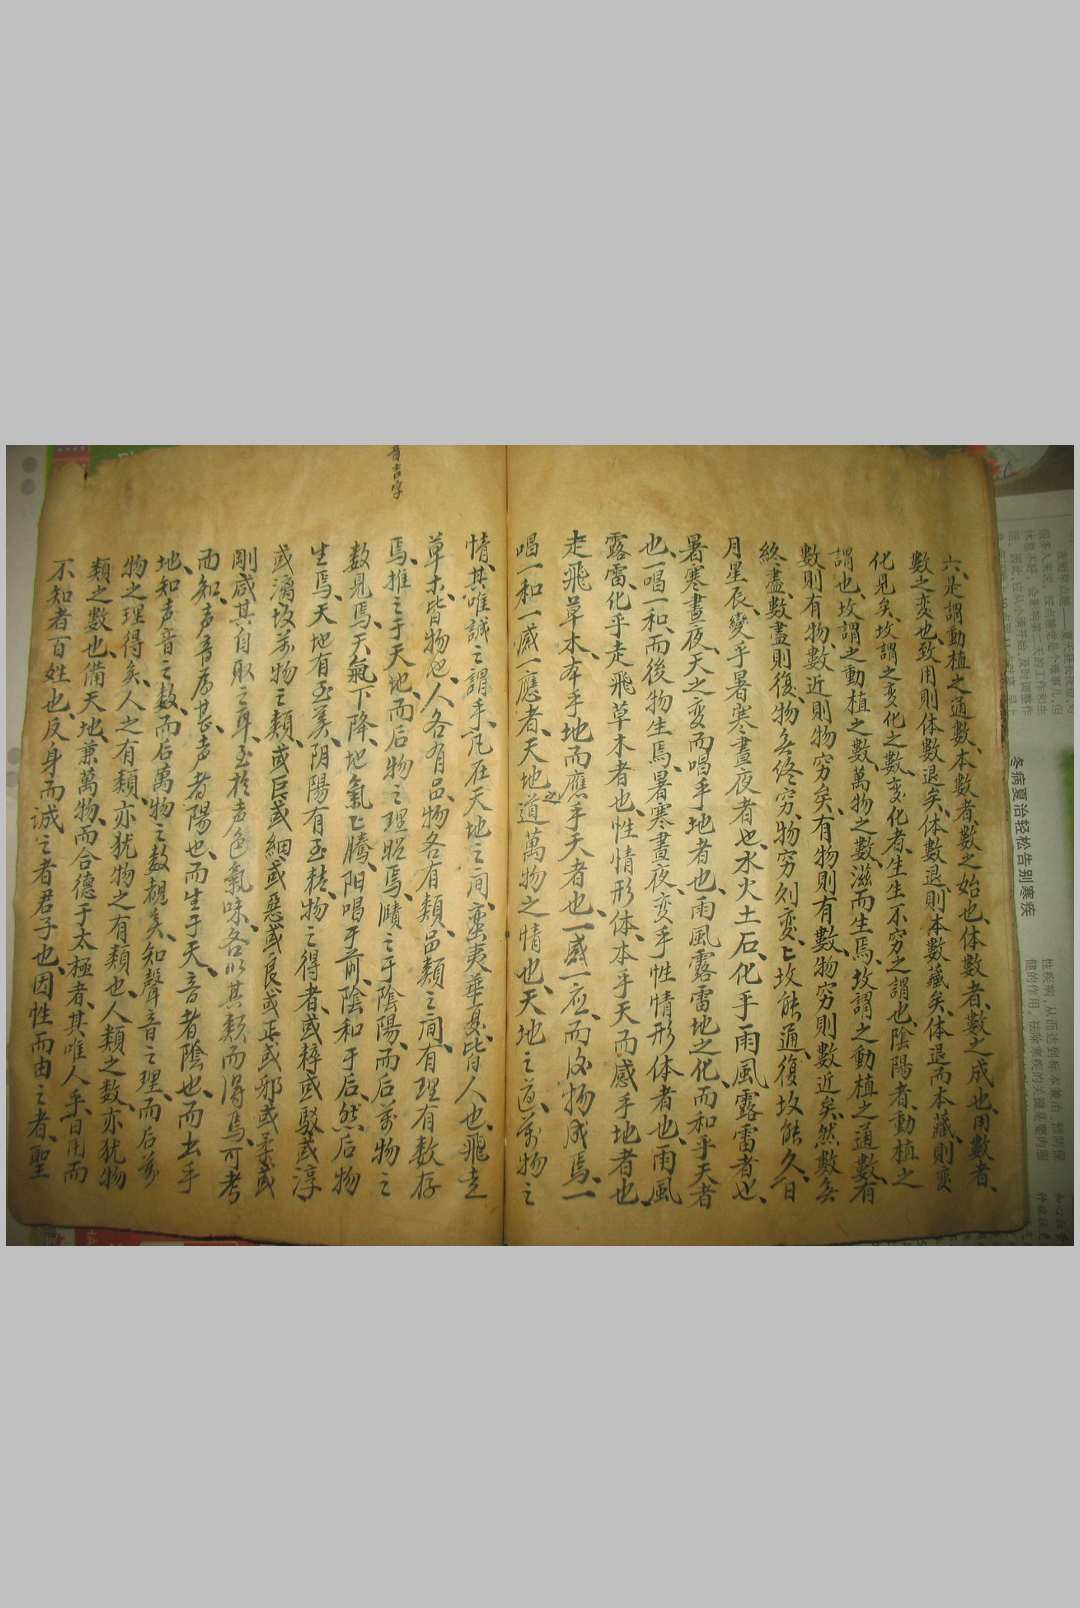 六、是謂動植之通數、本數者、數之始也、体數者、數之成也、用數者、
數之变也、致用則体數退矣、体數退、則本數藏矣、体退而本藏、則變
化見矣、故謂之变化之數、变化者、生生不穷之謂也、陰陽者、動植之
謂也、故謂之動植之數、萬物之數、滋而生焉、故謂之動植之道、數有
數則有物、數近則物穷矣、有物則有數、物穷則數近矣、然數無
終盡、數盡則復、物無終穷、物穷則变、变故能通、復故能久、日
月星辰、變乎暑寒晝夜者也、水火土石、化乎雨風露雷者也、
暑寒晝夜、天之变而唱乎地者也、雨風露雷、地之化、而和乎天者
也、一唱一和、而後物生焉、暑寒晝夜、变乎性情形体者也、雨風
露雷、化乎走飛草木者也、性情形体、本乎天而感乎地者也、
走飛草木、本乎地而應乎天者也、一感一应、而后物成焉、一
唱一和一感一應者、天地之道、萬物之情也、天地之道、萬物之
情、其唯誠之謂乎、凡在天地之间、蛮夷華夏、皆人也、飛走
草木、皆物也、人各有品、物各有類、品類之间、有理有数存
焉、推之于天地、而后物之理昭焉、賾之于陰陽、而后萬物之
数見焉、天氣下降、地氣上騰、阳唱于前、陰和于后、然后物
生焉、天地有至美、阴陽有至精、物之得者、或粹或駁或淳
或漓、故萬物之類、或巨或細、或惡或良、或正或邪、或柔或
剛、咸其自取之耳、至於声色氣味、各以其類而得焉、可考
而知、声音為甚、声者陽也、而生于天、音者陰也、而出乎
地、知声音之数、而后萬物之数覩矣、知聲音之理、而后萬
物之理得矣、人之有類、亦犹物之有類也、人類之数、亦犹物
類之數也、備天地、兼萬物、而合德于太極者、其唯人乎、日用而
不知者百姓也、反身而诚之者君子也、因性而由之者、聖
音吉字
冬病夏治轻松告别寒疾